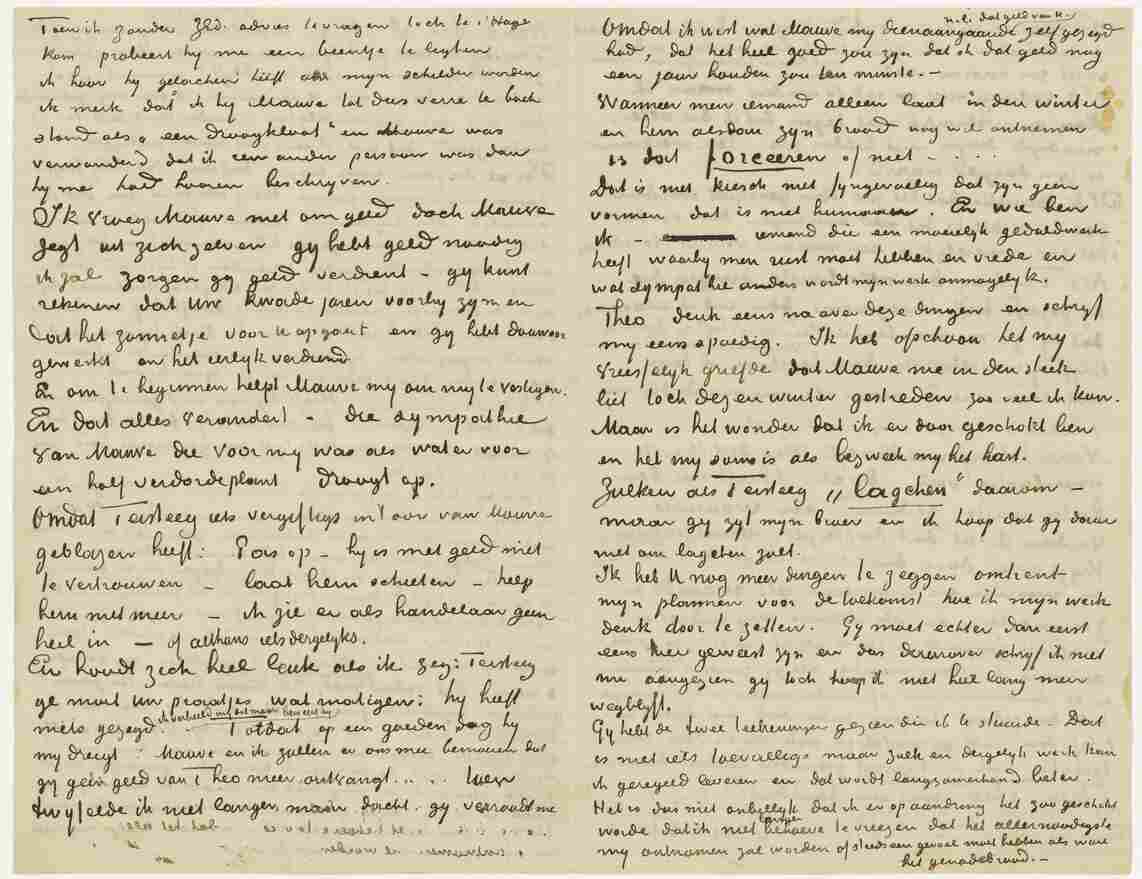 Toen ik zonder ZEd. advies te vragen toch te 's Hage
kom probeert hy me een beentje te ligten
ik hoor hy gelachen heeft over myn schilder worden
ik merk dat ik by Mauve tot dus verre te boek
stond als „een droogkloot” en Mauve was
verwonderd dat ik een ander persoon was dan
hy me had hooren beschryven.
Ik vroeg Mauve niet om geld doch Mauve
zegt uit zich zelven gy hebt geld noodig
ik zal zorgen gy geld verdient – gy kunt
rekenen dat uw kwade jaren voorby zyn en
dat het zonnetje voor U opgaat en gy hebt daarvoor
gewerkt en het eerlyk verdiend.
En om te beginnen helpt Mauve my om my te vestigen.
En dat alles verandert – die sympathie
van Mauve die voor my was als water voor
een half verdorde plant droogt op.
Omdat Tersteeg iets vergiftigs in 't oor van Mauve
geblazen heeft: Pas op – hy is met geld niet
te vertrouwen – laat hem schieten – help
hem niet meer – ik zie er als handelaar geen
heil in – of althans iets dergelyks.
En houdt zich heel leuk als ik zeg: Tersteeg
ge moet uw praatjes wat matigen: hy heeft
niets gezegd. ik verbeeld my dat maar beweert hy
Totdat op een goeden dag hy
my dreigt: Mauve en ik zullen er ons mee bemoeien dat
gy geen geld van Theo meer ontvangt..... toen
twyfelde ik niet langer, maar dacht – gy verraadt me
n.l. dat geld van U
Omdat ik wist wat Mauve my dienaangaande zelf gezegd
had, dat het heel goed zou zyn dat ik dat geld nog
een jaar houden zou ten minste. –
Wanneer men iemand alleen laat in den winter
en hem alsdan zyn brood nog wil ontnemen
is dat forceeren of niet – . . . .
Dat is niet kiesch niet fyngevoelig dat zyn geen
vormen dat is niet humaan. En wie ben
ik – iemand die een moeielyk geduldwerk
heeft waarby men rust moet hebben en vrede en
wat sympathie anders wordt myn werk onmogelyk.
Theo denk eens na over deze dingen en schryf
my eens spoedig. Ik heb ofschoon het my
vreesselyk griefde dat Mauve me in den steek
liet toch dezen winter gestreden zoo veel ik kon.
Maar is het wonder dat ik er door geschokt ben
en het my soms is als bezweek my het hart.
Zulken als Tersteeg „lagchen” daarom –
maar gy zyt myn broer en ik hoop dat gy daar
niet om lagchen zult.
Ik heb U nog meer dingen te zeggen omtrent
myn plannen voor de toekomst hoe ik myn werk
denk door te zetten. Gy moet echter dan eerst
eens hier geweest zyn en dus daarover schryf ik niet
nu aangezien gy toch hoop ik niet heel lang meer
wegblyft.
Gy hebt de twee teekeningen gezien die ik U stuurde. Dat
is niet iets toevalligs maar zulk en dergelyk werk kan
ik geregeld leveren en dat wordt langzamerhand beter.
Het is dus niet onbillyk dat ik er op aandring het zoo geschikt
worde dat ik niet langer behoeve te vreezen dat het allernoodigste
my ontnomen zal worden of steeds een gevoel moet hebben als ware
het genadebrood. –